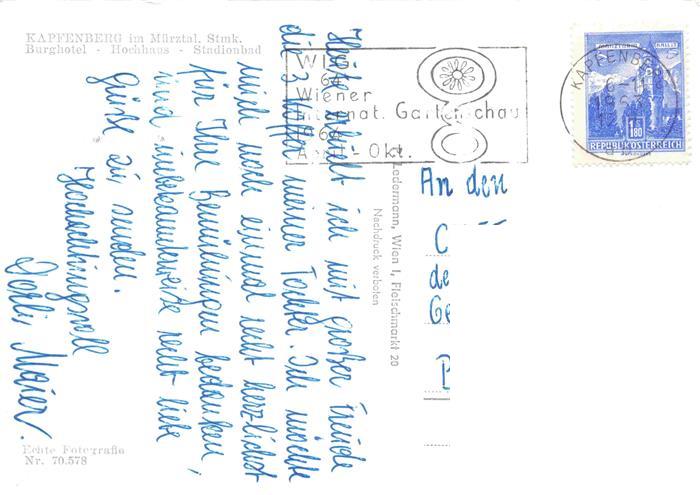 KAPFENBERG im Mürztal, Stmk.
Burghotel - Hochhaus - Stadionbad
WIG
64
Wiener
Internat. Gartenschau
1964
April - Okt.
KAPFENBERG
1.80
REPUBLIK ÖSTERREICH
Heute erhielt ich mit großer Freude
die 3 Koffer meiner Tochter. Ich möchte
mich noch einmal recht herzlichst
für Ihre Bemühungen bedanken,
und unbekannterweise recht liebe
Grüße zu senden.
Hochachtungsvoll
Maier.
Ledermann, Wien I, Fleischmarkt 20
Nachdruck verboten
An den
C
de
Ge
B
Echte Fotografie
Nr. 70.578